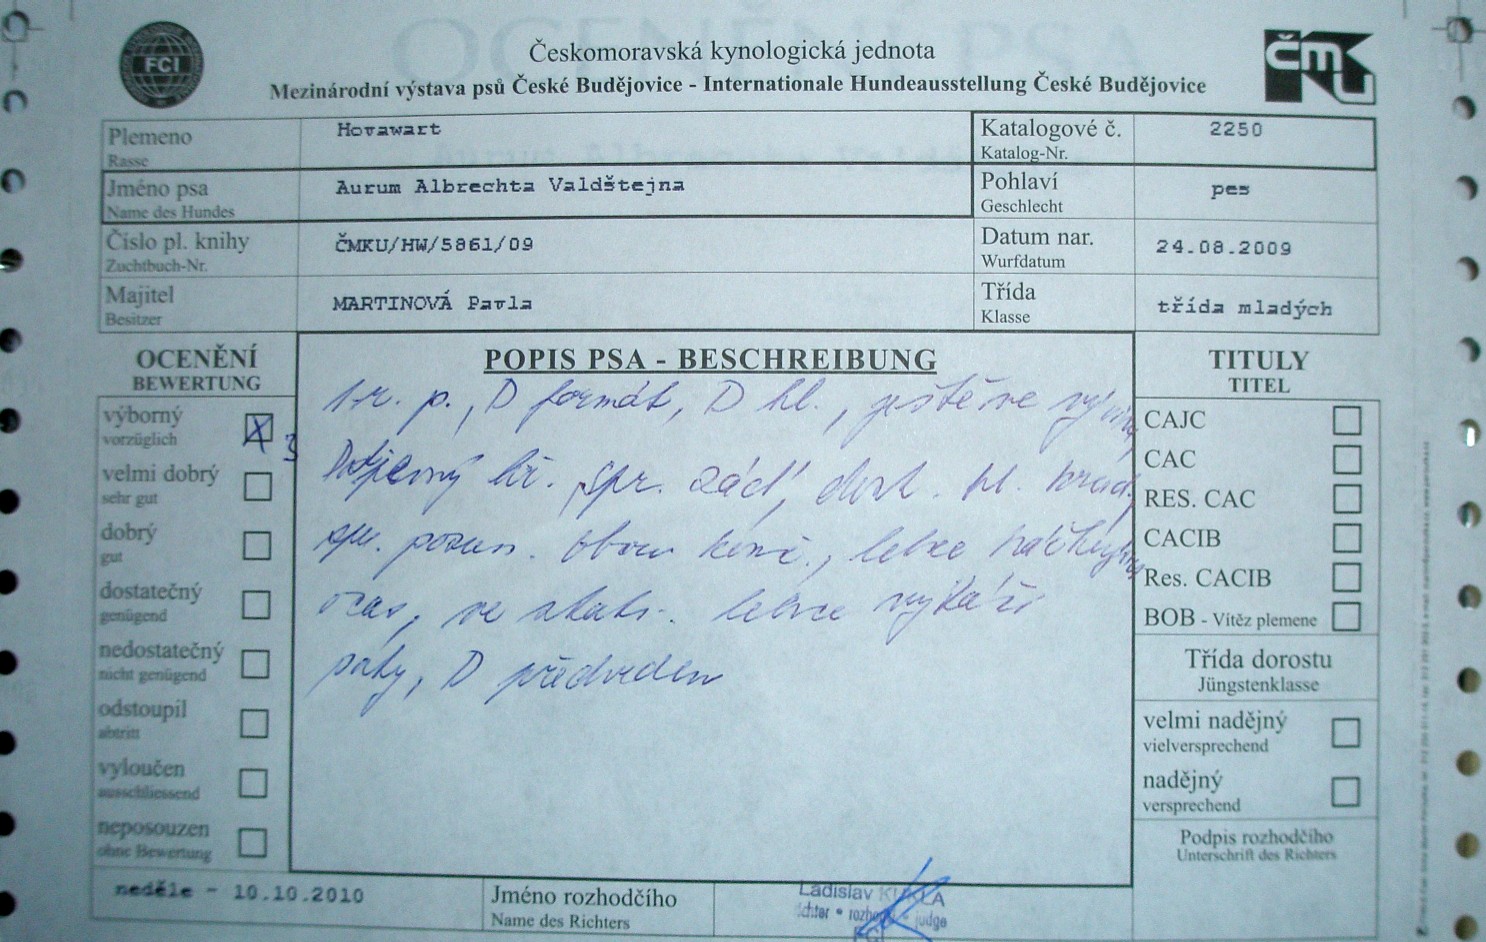 FCI
Českomoravská kynologická jednota
Mezinárodní výstava psů České Budějovice - Internationale Hundeausstellung České Budějovice
ČMKU
Plemeno
Rasse
Hovawart
Katalogové č.
Katalog-Nr.
2250
Jméno psa
Name des Hundes
Aurum Albrechta Valdštejna
Pohlaví
Geschlecht
pes
Číslo pl. knihy
Zuchtbuch-Nr.
ČMKU/HW/5861/09
Datum nar.
Wurfdatum
24.08.2009
Majitel
Besitzer
MARTINOVÁ Pavla
Třída
Klasse
třída mladých
OCENĚNÍ
BEWERTUNG
výborný
vorzüglich
X 3
velmi dobrý
sehr gut
dobrý
gut
dostatečný
genügend
nedostatečný
nicht genügend
odstoupil
abtritt
vyloučen
ausschliessend
neposouzen
ohne Bewertung
POPIS PSA - BESCHREIBUNG
1 r. p., D formát, D hl., ještě ve
hř. spr. záď, dost. hl.
spr. lehce
ocas, ve lehce
D předveden
TITULY
TITEL
CAJC
CAC
RES. CAC
CACIB
Res. CACIB
BOB - Vítěz plemene
Třída dorostu
Jüngstenklasse
velmi nadějný
vielversprechend
nadějný
versprechend
Podpis rozhodčího
Unterschrift des Richters
neděle - 10.10.2010
Jméno rozhodčího
Name des Richters
Ladislav
judge